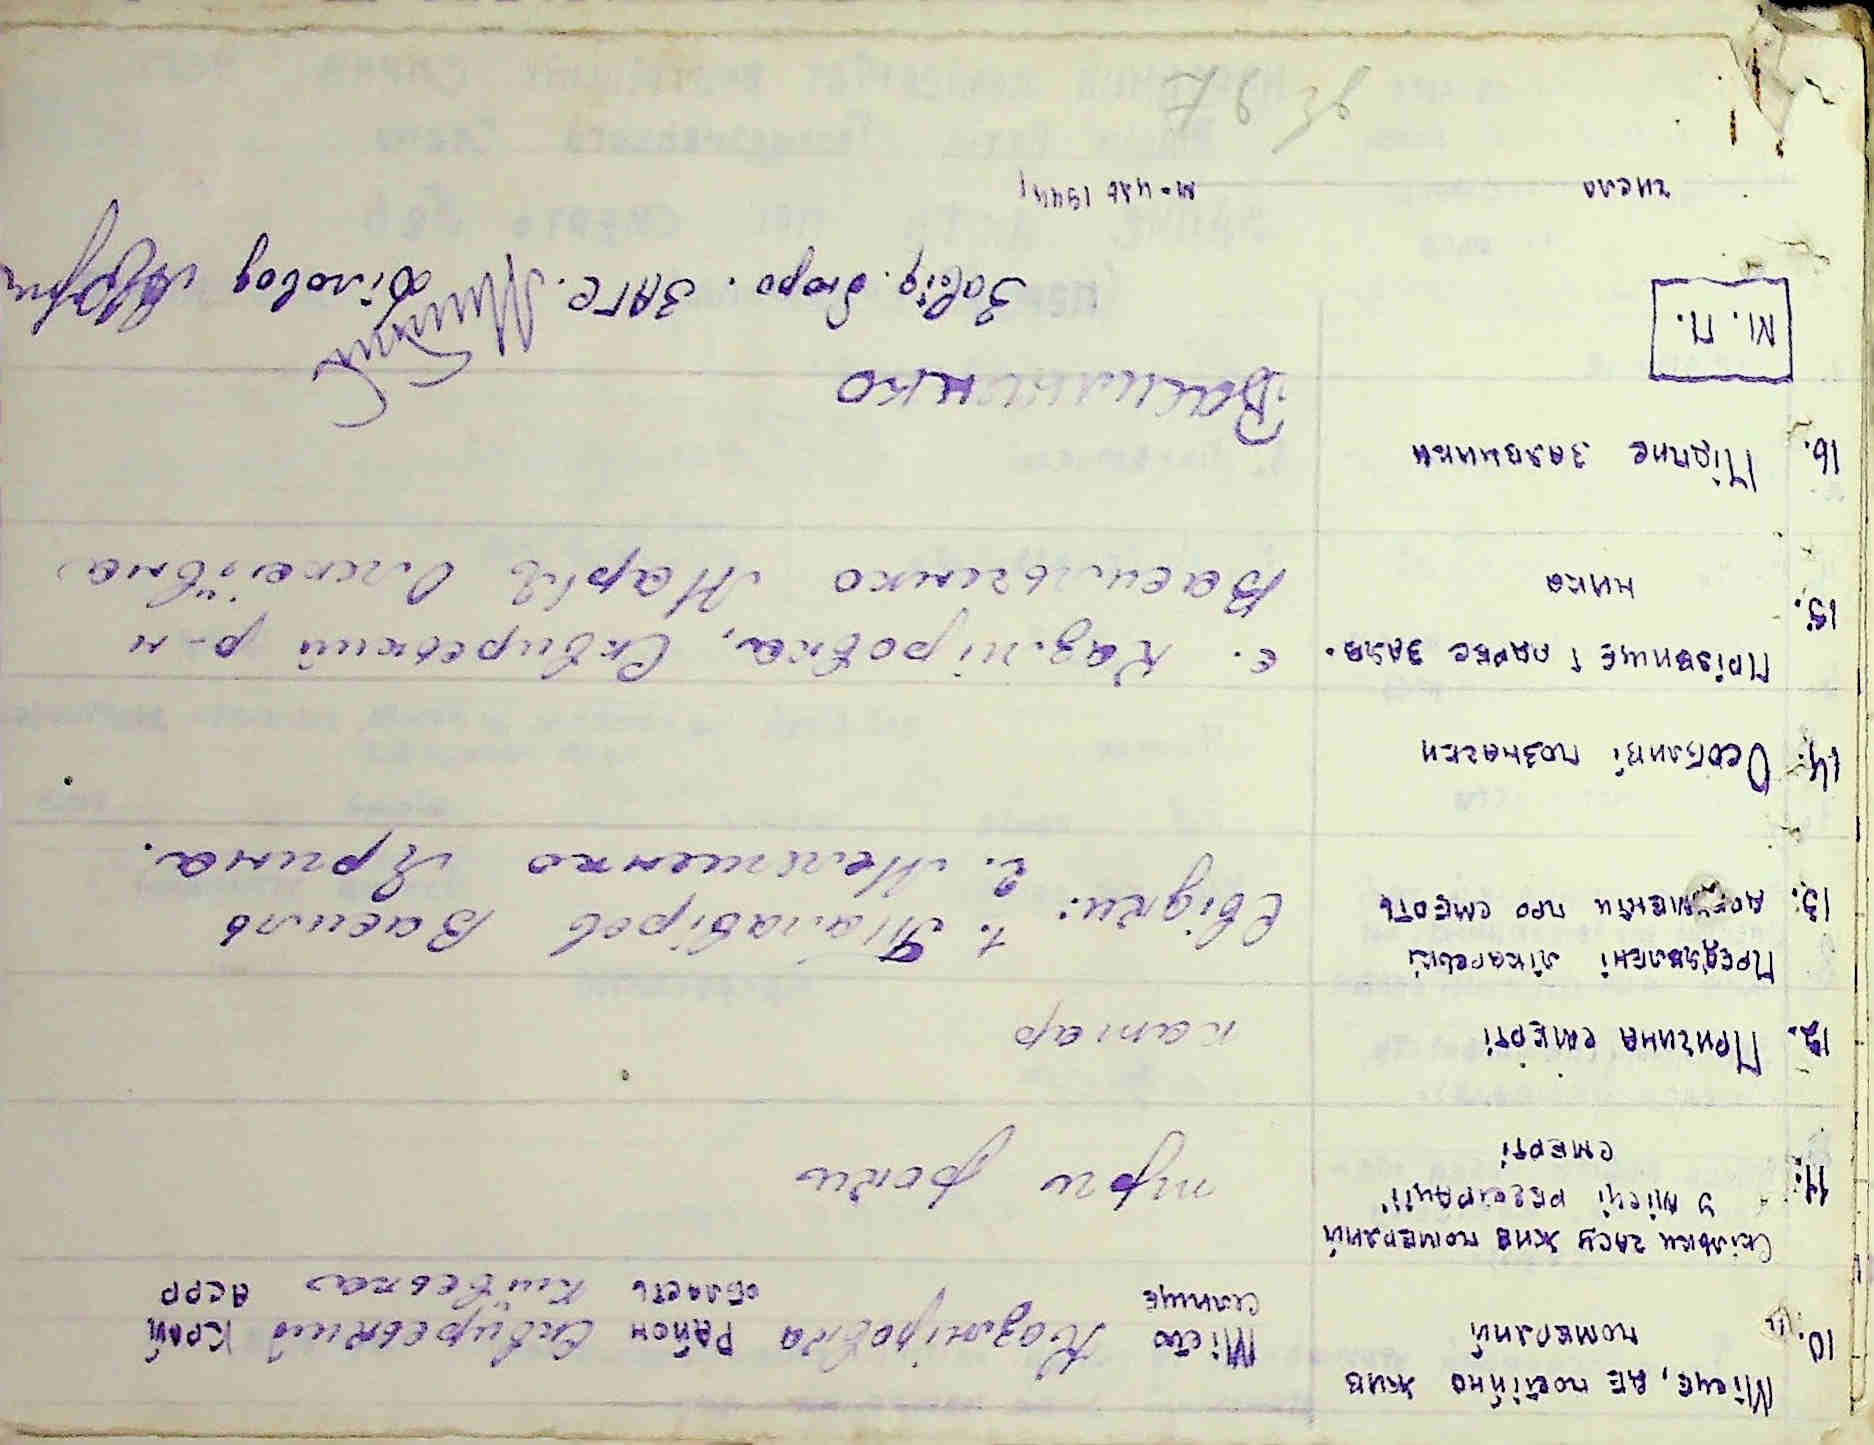 10. Місце, де постійно жив
померлий
Місто Казміровка Район Сквирський Край
селище область Київська АСРР
11. Скільки часу жив померлий
у місці реєстрації
смерті
три роки
12. Причина смерті
катар
13. Пред'явлені лікарські
документи про смерть
Свідки: 1. Василь
2. Мельниченко Ярина.
14. Особливі позначки
15. Прізвище і адрес заяв-
ника
с. Казміровка, Сквирський р-н
Васильченко Марія Олексіївна
16. Підпис заявника
Васильченко
М. П.
Завід. бюро. ЗАГС. Діловод
число м-ця 194